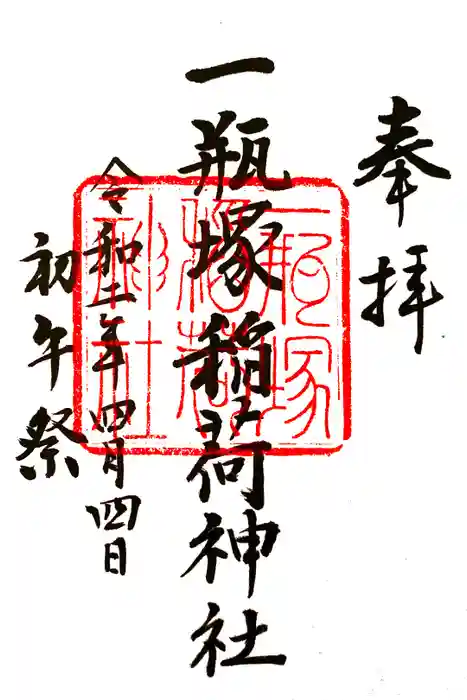 奉拝
一瓶塚稲荷神社
令和二年四月四日
初午祭
一瓶塚
稲荷
神社